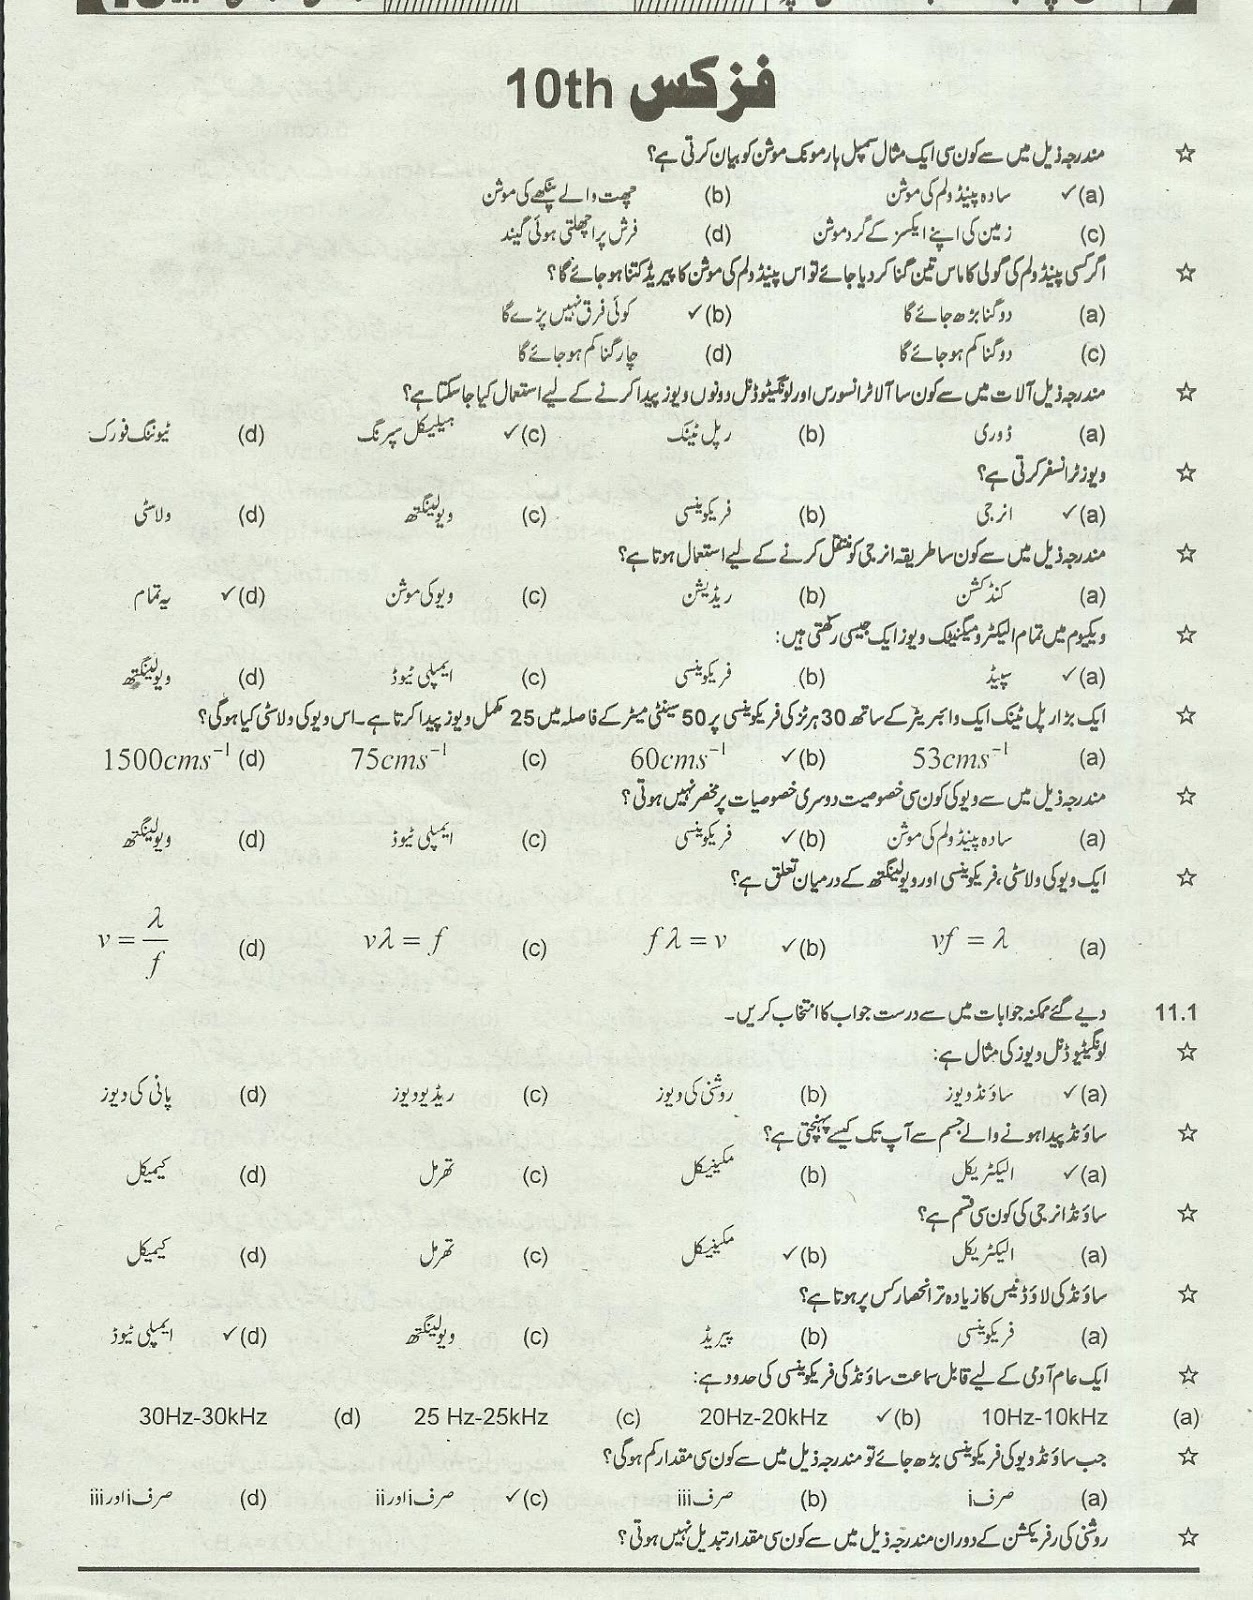 فزکس 10th
☆ مندرجہ ذیل میں سے کون سی ایک مثال سمپل ہارمونک موشن کو بیان کرتی ہے؟
✓(a) سادہ پینڈولم کی موشن (b) چھت والے پنکھے کی موشن
(c) زمین کی اپنے ایکسز کے گرد موشن (d) فرش پر اچھلتی ہوئی گیند
☆ اگر کسی پینڈولم کی گولی کا ماس تین گنا کر دیا جائے تو اس پینڈولم کی موشن کا پیریڈ کتنا ہو جائے گا؟
(a) دوگنا بڑھ جائے گا ✓(b) کوئی فرق نہیں پڑے گا
(c) دوگنا کم ہو جائے گا (d) چار گنا کم ہو جائے گا
☆ مندرجہ ذیل آلات میں سے کون سا آلا ٹرانسورس اور لونگیٹیوڈنل دونوں ویوز پیدا کرنے کے لیے استعمال کیا جا سکتا ہے؟
(a) ڈوری (b) رپل ٹینک ✓(c) ہیلیکل سپرنگ (d) ٹیوننگ فورک
☆ ویوز ٹرانسفر کرتی ہے؟
✓(a) انرجی (b) فریکوئنسی (c) ویولینگتھ (d) ولاسٹی
☆ مندرجہ ذیل میں سے کون سا طریقہ انرجی کو منتقل کرنے کے لیے استعمال ہوتا ہے؟
(a) کنڈکشن (b) ریڈیشن (c) ویو کی موشن ✓(d) یہ تمام
☆ ویکیوم میں تمام الیکٹرومیگنیٹک ویوز ایک جیسی رکھتی ہیں:
✓(a) سپیڈ (b) فریکوئنسی (c) ایمپلی ٹیوڈ (d) ویولینگتھ
☆ ایک بڑا رپل ٹینک ایک وائبریٹر کے ساتھ 30 ہرٹز کی فریکوئنسی پر 50 سینٹی میٹر کے فاصلہ میں 25 مکمل ویوز پیدا کرتا ہے۔ اس ویو کی ولاسٹی کیا ہوگی؟
(a) 53cms⁻¹ ✓(b) 60cms⁻¹ (c) 75cms⁻¹ (d) 1500cms⁻¹
☆ مندرجہ ذیل میں سے ویو کی کون سی خصوصیت دوسری خصوصیات پر منحصر نہیں ہوتی؟
(a) سادہ پینڈولم کی موشن ✓(b) فریکوئنسی (c) ایمپلی ٹیوڈ (d) ویولینگتھ
☆ ایک ویو کی ولاسٹی، فریکوئنسی اور ویولینگتھ کے درمیان تعلق ہے؟
(a) vf = λ ✓(b) fλ = v (c) vλ = f (d) v = λ/f
11.1 دیے گئے ممکنہ جوابات میں سے درست جواب کا انتخاب کریں۔
☆ لونگیٹیوڈنل ویوز کی مثال ہے:
✓(a) ساؤنڈ ویوز (b) روشنی کی ویوز (c) ریڈیو ویوز (d) پانی کی ویوز
☆ ساؤنڈ پیدا ہونے والے جسم سے آپ تک کیسے پہنچتی ہے؟
✓(a) الیکٹریکل (b) مکینیکل (c) تھرمل (d) کیمیکل
☆ ساؤنڈ انرجی کی کون سی قسم ہے؟
(a) الیکٹریکل ✓(b) مکینیکل (c) تھرمل (d) کیمیکل
☆ ساؤنڈ کی لاؤڈنیس کا زیادہ تر انحصار کس پر ہوتا ہے؟
(a) فریکوئنسی (b) پیریڈ (c) ویولینگتھ ✓(d) ایمپلی ٹیوڈ
☆ ایک عام آدمی کے لیے قابل سماعت ساؤنڈ کی فریکوئنسی کی حدود ہے:
(a) 10Hz-10kHz ✓(b) 20Hz-20kHz (c) 25 Hz-25kHz (d) 30Hz-30kHz
☆ جب ساؤنڈ ویو کی فریکوئنسی بڑھ جائے تو مندرجہ ذیل میں سے کون سی مقدار کم ہوگی؟
(a) صرف i (b) صرف iii ✓(c) صرف i اور ii (d) صرف i اور iii
☆ روشنی کی رفریکشن کے دوران مندرجہ ذیل میں سے کون سی مقدار تبدیل نہیں ہوتی؟